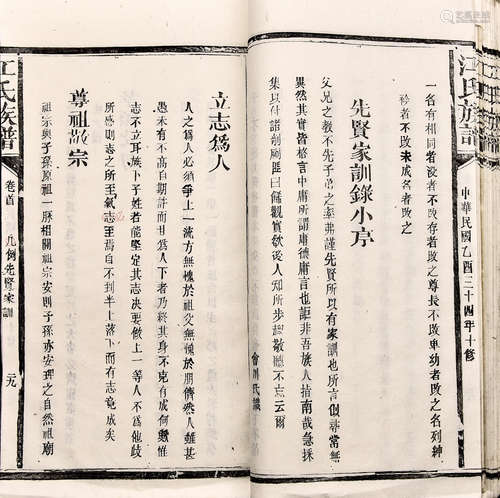 江氏族譜
中華民國乙酉三十四年十修
一名有相同者沒者不改存者改之尊長不改卑幼者改之名列紳
衿者不改未成名者改之
先賢家訓錄小序
父兄之教不先子弟之率弗謹先賢所以有家訓也所言似尋常無
異然其實皆格言中庸所謂庸德庸言也詎非吾族人指南哉急採
集以付諸剞劂匪曰修觀實欲後人知所步趨敬聽不忘云爾
立志為人
人之為人必須爭上一流方無愧於祖父無愧於朋儕然人晝甚
愚未有不高自期許而甘為人下者乃終其身不克有成何歟惟
志不立耳族下子姓者能堅定其志決要做上一等人不為他歧
所惑則志之所至氣志至焉自不到半上落下而有志竟成矣
尊祖敬宗
祖宗與子孫原祖一脈相關祖宗安則子孫亦安理之自然祖廟
江氏族譜
卷首
凡例先賢家訓